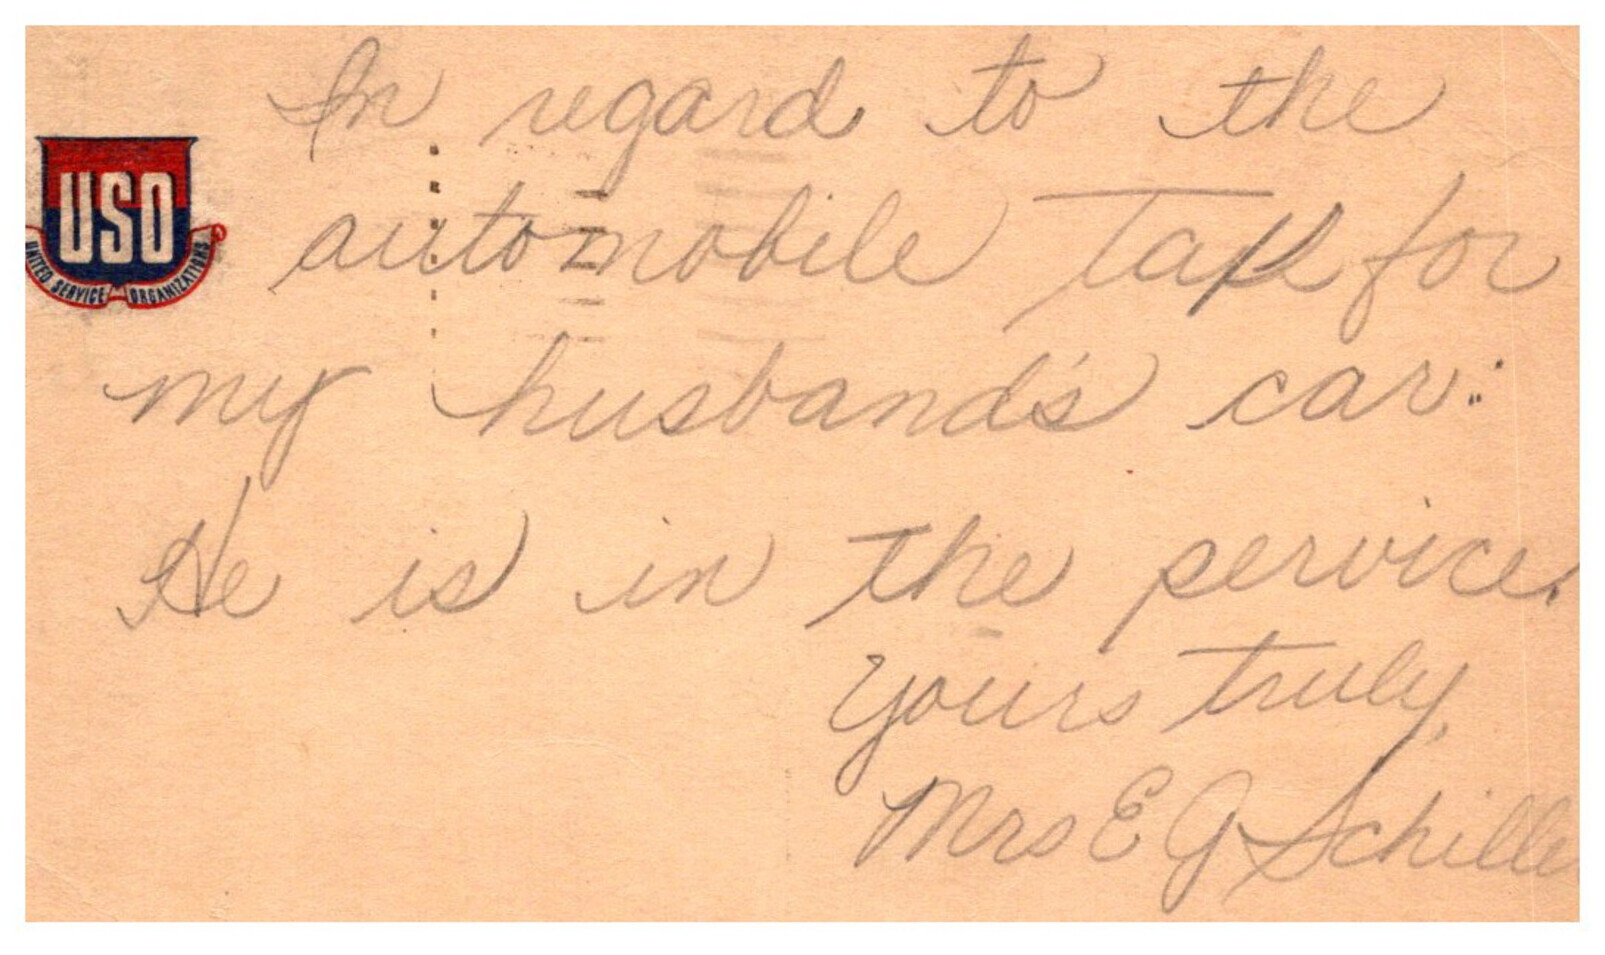 In regard to the
USO
UNITED SERVICE ORGANIZATIONS
automobile Tax for
my husband's car:
He is in the service.
Yours truly,
Mrs E G Schille